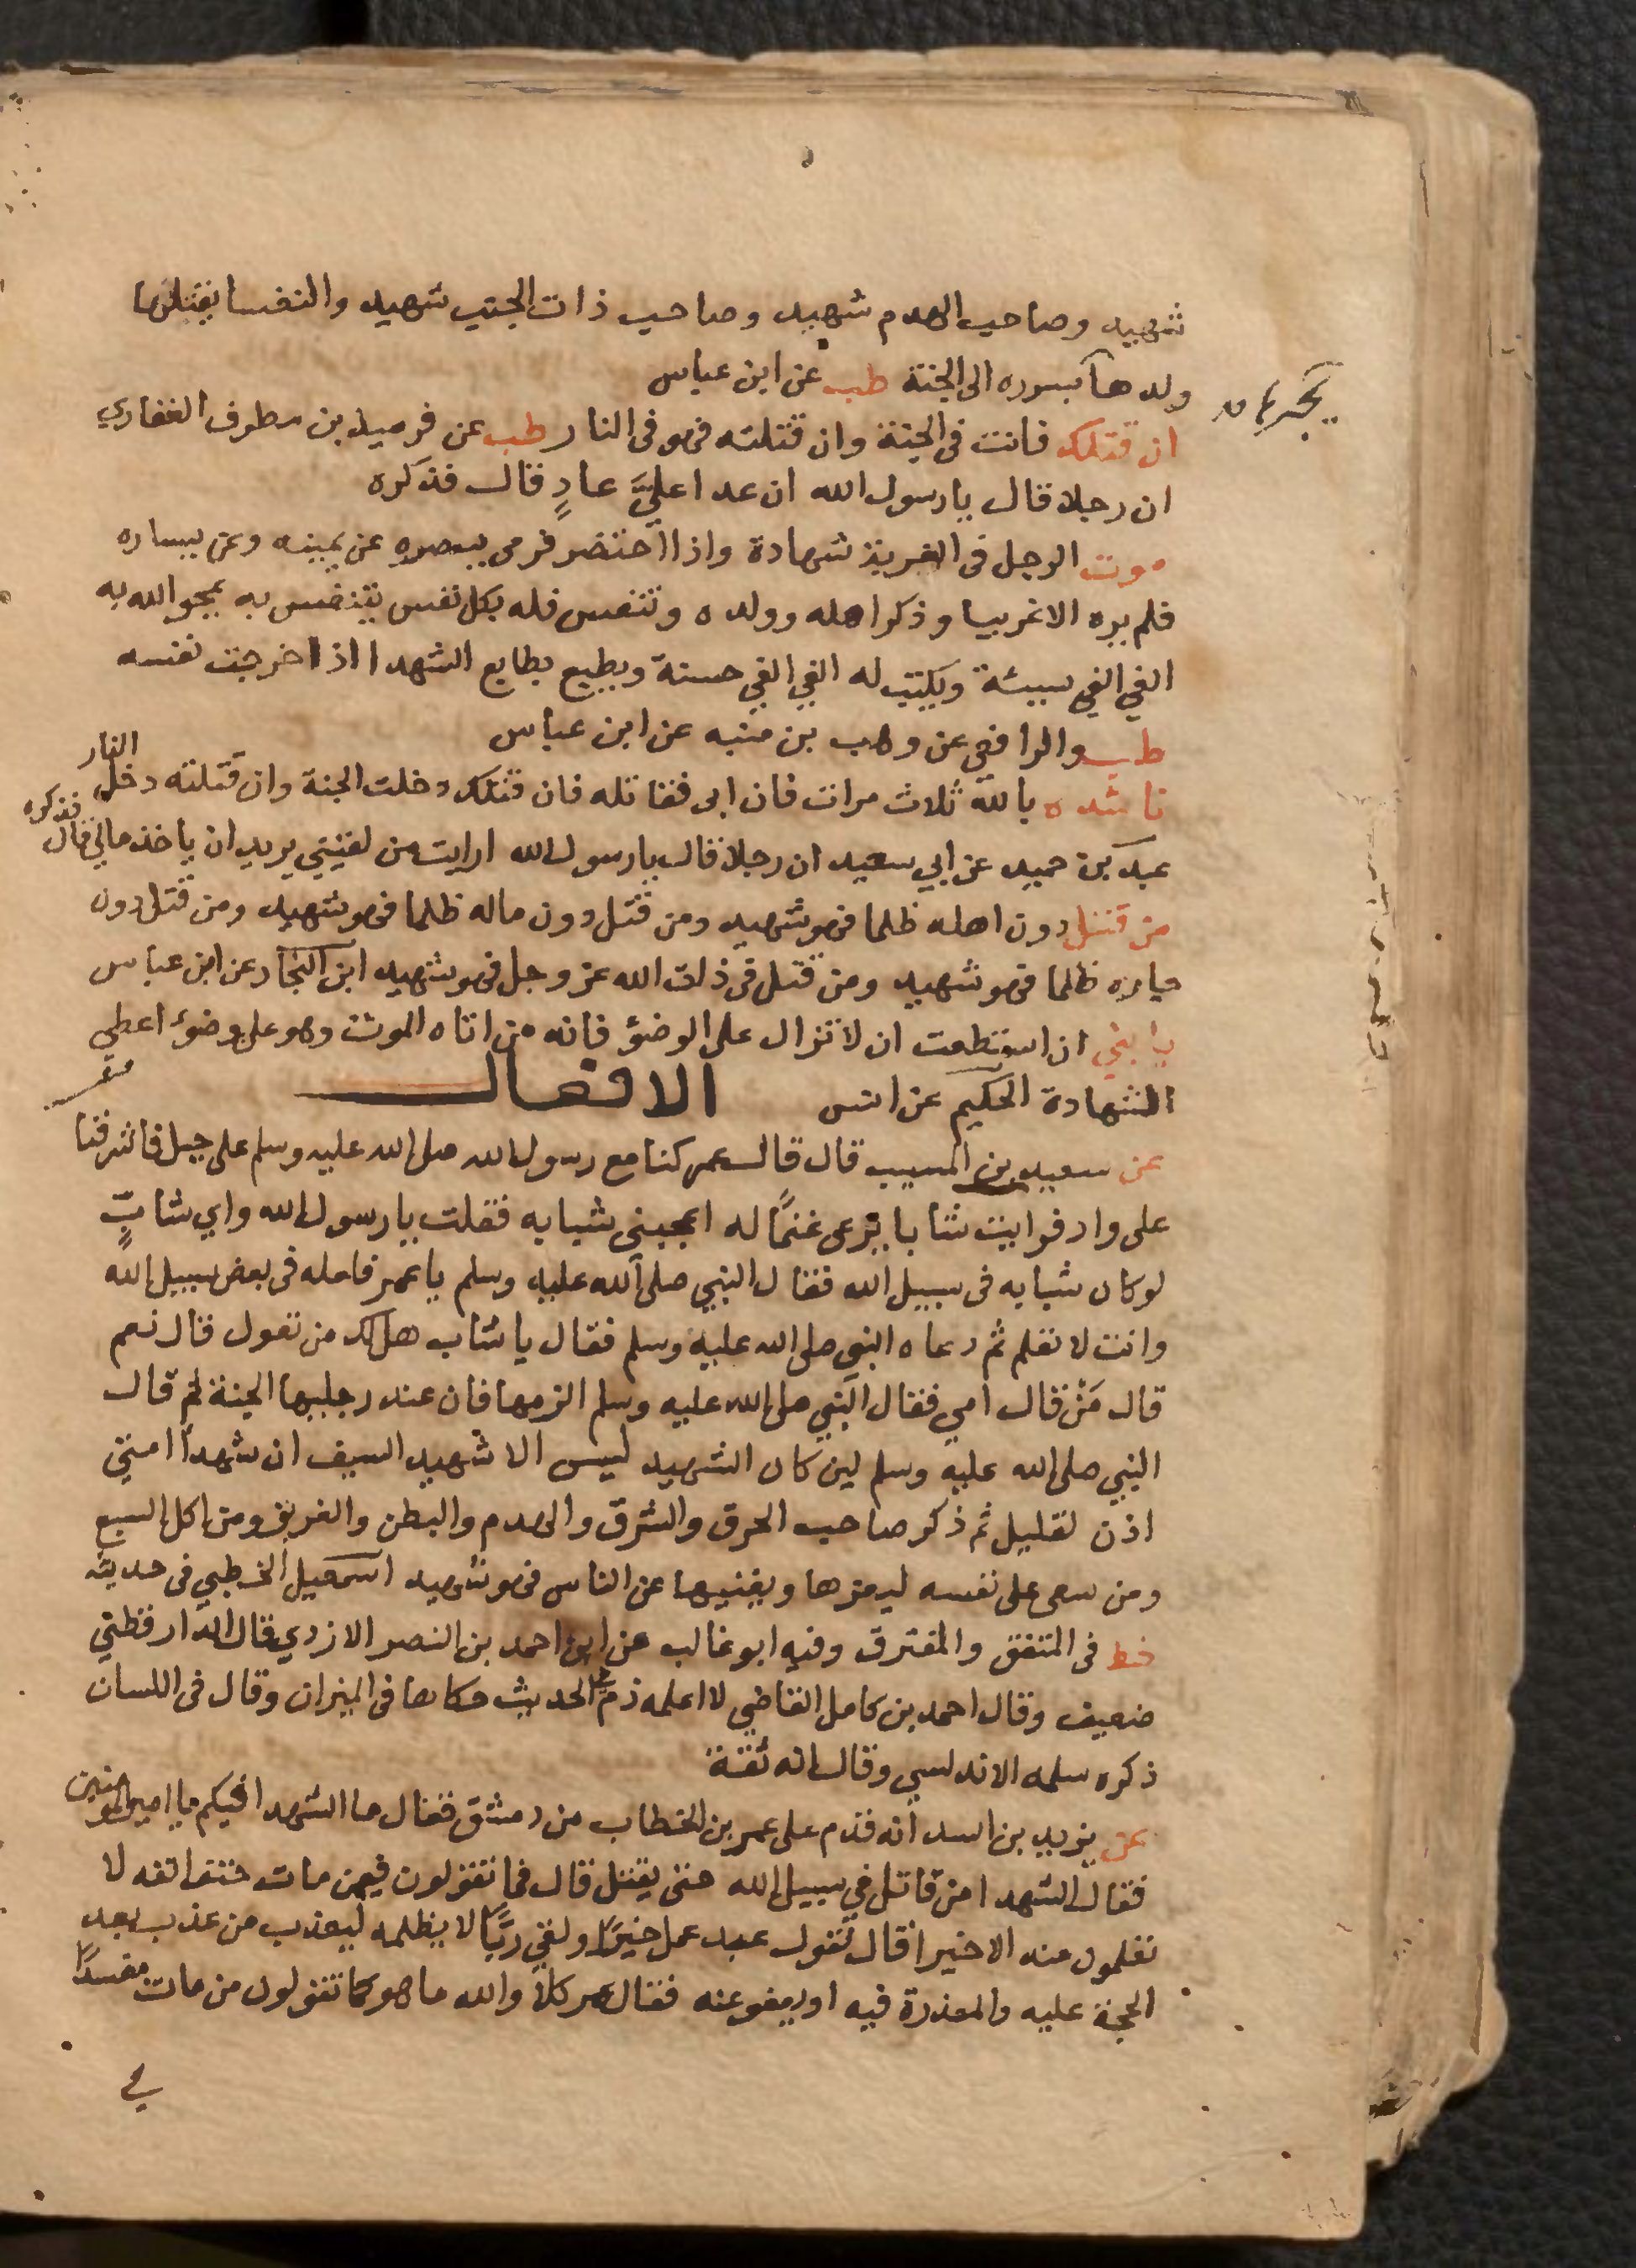 شهيد وصاحب الهدم شهيد وصاحب ذات الجنب شهيد والنفسا يقتلها
ولدها بسرره الى الجنة طب عن ابن عباس
يجرها
ان قتلك فانت فى الجنة وان قتلته فهو فى النار طب عن قهيد بن مطرف الغفاري
ان رجلا قال يا رسول الله ان عدا عليَّ عادٍ قال فذكره
موت الرجل فى الغربة شهادة واذا احتضر فرمى ببصره عن يمينه وعن يساره
فلم يره الا غريبا وذكر اهله وولده وتنفس فله بكل نفس يتنفس به يمحو الله به
الفي الفي سيئة ويكتب له الفي الفي حسنة ويطبع بطابع الشهدا اذا خرجت نفسه
طب والرافعي عن وهب بن منبه عن ابن عباس
ناشده بالله ثلاث مرات فان ابى فقاتله فان قتلك دخلت الجنة وان قتلته دخل النار
عبد بن حميد عن ابي سعيد ان رجلا قال يا رسول الله ارايت من لقيني يريد ان ياخذ مالي قال فذكره
من قتل دون اهله ظلما فهو شهيد ومن قتل دون ماله ظلما فهو شهيد ومن قتل دون
جاره ظلما فهو شهيد ومن قتل فى ذات الله عز وجل فهو شهيد ابن النجار عن ابن عباس
يا بني ان استطعت ان لا تزال على الوضؤ فانه من اتاه الموت وهو على وضوء اعطي
الشهادة الحكيم عن انس الافعال
عن سعيد بن المسيب قال قال عمر كنا مع رسول الله صلى الله عليه وسلم على جبل فاشرفنا
على واد فرايت شابا يرعى غنمًا له اعجبنى شبابه فقلت يا رسول الله واي شابٍّ
لو كان شبابه فى سبيل الله فقال النبي صلى الله عليه وسلم يا عمر فلعله فى بعض سبيل الله
وانت لا تعلم ثم دعاه النبي صلى الله عليه وسلم فقال يا شاب هل لك من تعول قال نعم
قال مَنْ قال امي فقال النبي صلى الله عليه وسلم الزمها فان عند رجليها الجنة ثم قال
النبي صلى الله عليه وسلم لين كان الشهيد ليس الا شهيد السيف ان شهدا امتي
اذن لقليل ثم ذكر صاحب الحرق والشرق والهدم والبطن والغريق ومن اكل السبع
ومن سعى على نفسه ليعزها ويغنيها عن الناس فهو شهيد اسمعيل الخطبي فى حديثه
خط فى المتفق والمفترق وفيه ابو غالب عن ابن احمد بن النصر الازدي قال الدارقطني
ضعيف وقال احمد بن كامل القاضي لا اعلمه ذم الحديث حكاها فى الميزان وقال فى اللسان
ذكره سلمه الاندلسي وقال انه ثقة
عن يزيد بن اسد انه قدم على عمر بن الخطاب من دمشق فقال ما الشهدا فيكم يا امير المومنين
فقال الشهدا من قاتل في سبيل الله حتى يقتل قال فما تقولون فيمن مات حتف انفه لا
تعلمون منه الا خيرا قال نقول عبد عمل خيرًا ولقي ربًّا لا يظلمه ليعذب من عذب بعد
الحجة عليه والمعذرة فيه او يعفو عنه فقال عمر كلا والله ما هو كما تقولون من مات مفسدًا
في